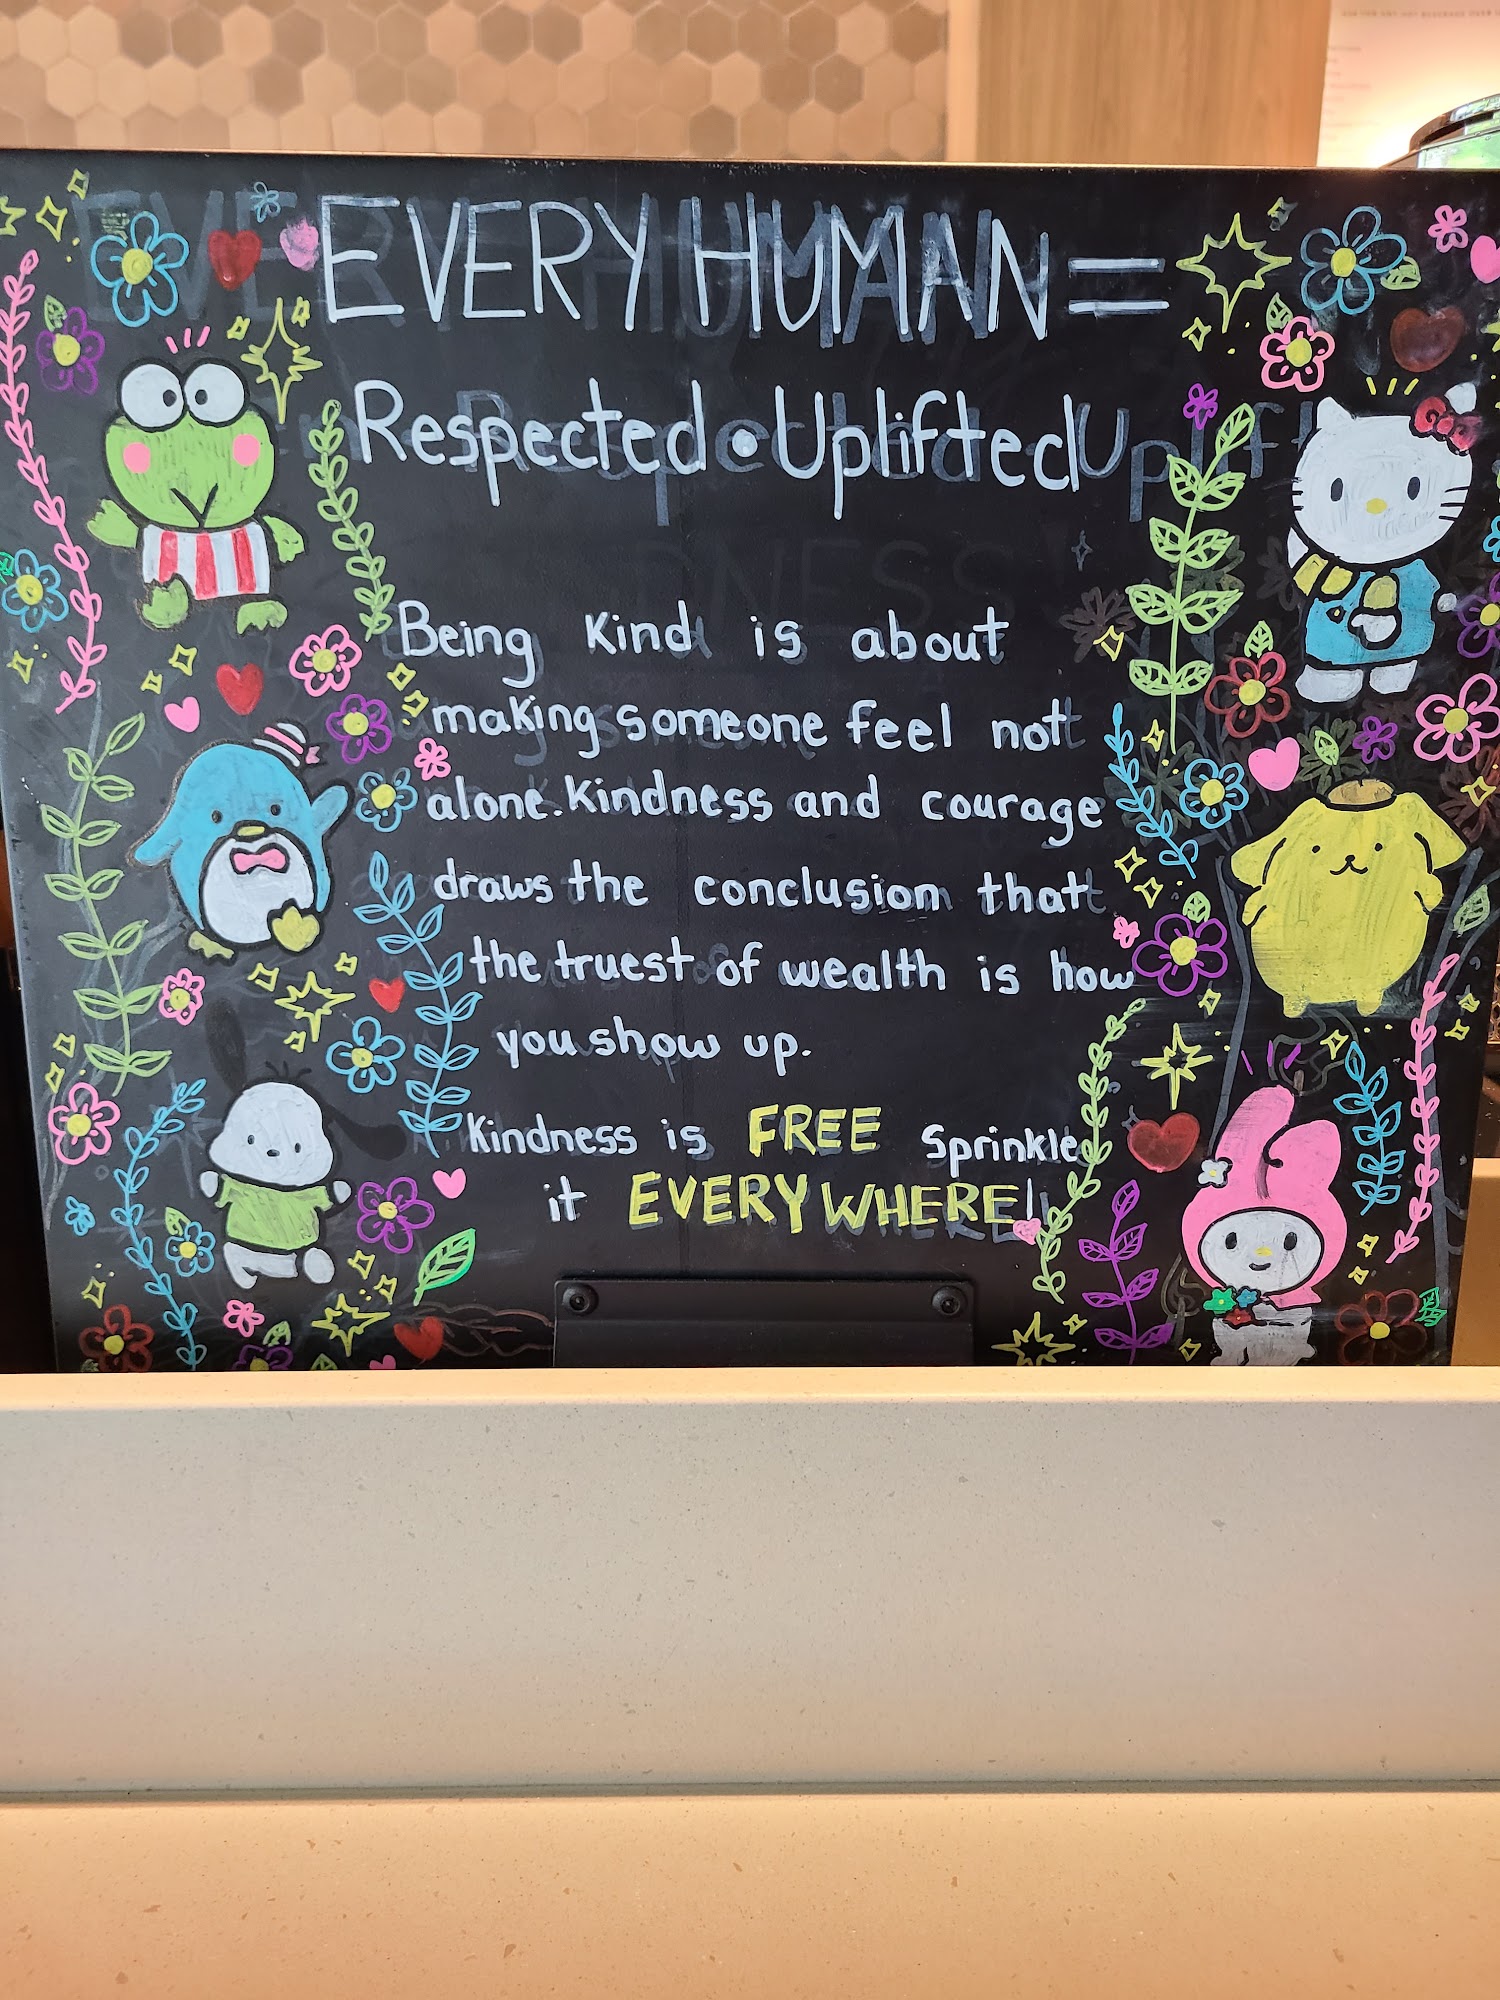 EVERY HUMAN =
Respected • Uplifted
Being kind is about
making someone feel not
alone. Kindness and courage
draws the conclusion that
the truest of wealth is how
you show up.
Kindness is FREE Sprinkle
it EVERYWHERE!